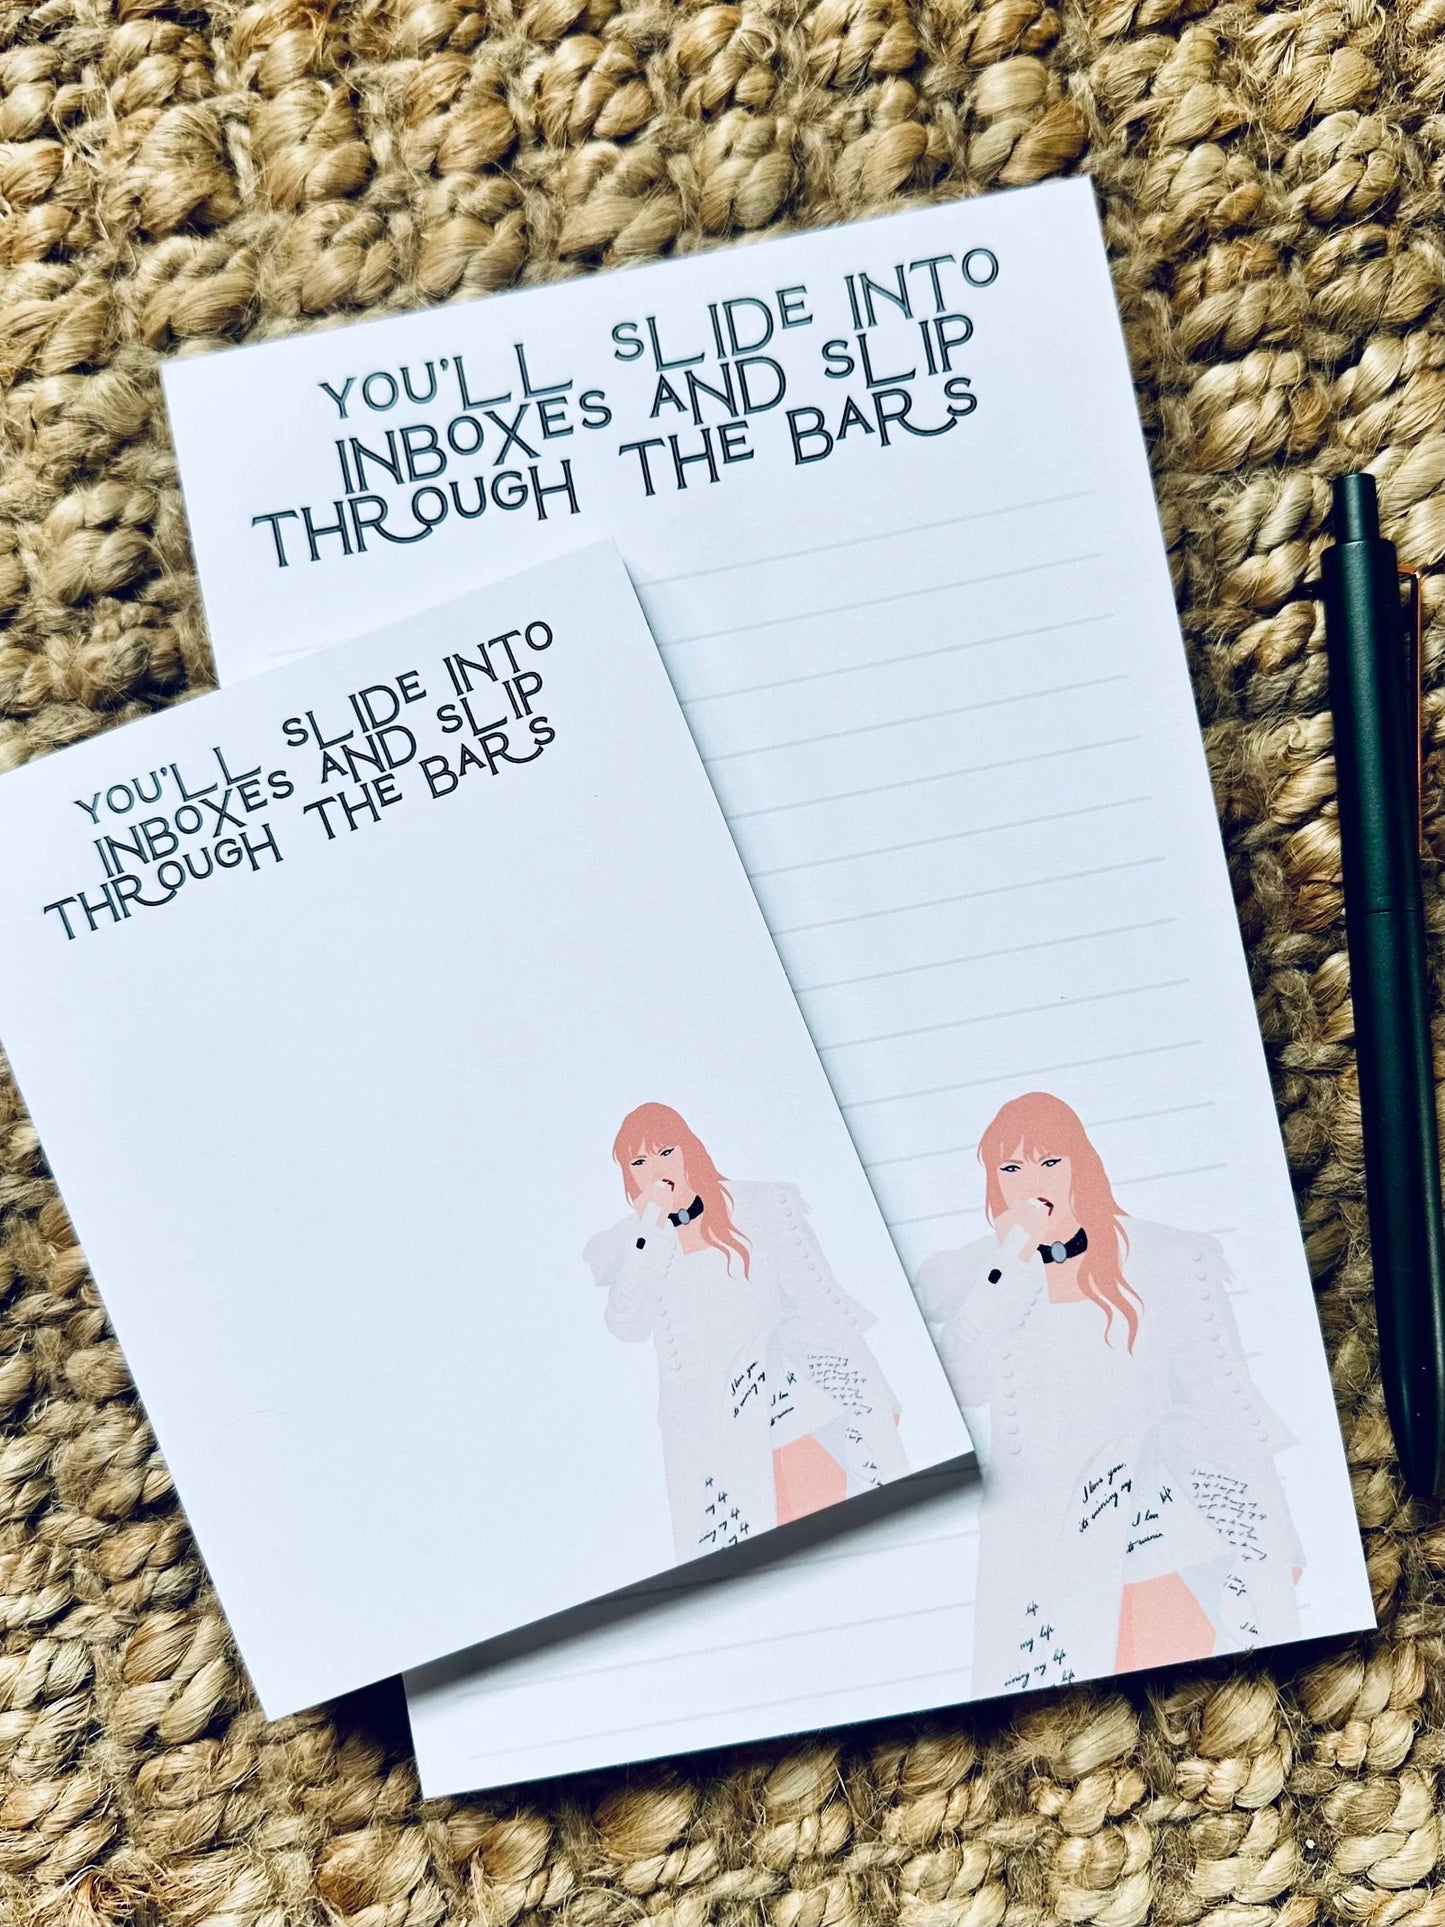 YOU'LL SLIDE INTO
INBOXES AND SLIP
THROUGH THE BARS
YOU'LL SLIDE INTO
INBOXES AND SLIP
THROUGH THE BARS
I love you,
its ruining my
life
I lov
I love you,
its ruining my
life
I lov
life
my life
ruining my life